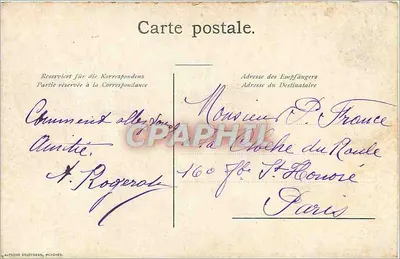 Carte postale.
Reserviert für die Korrespondenz
Partie réservée à la Correspondance
Adresse des Empfängers
Adresse du Destinataire
Comment allez vous
Amitié.
A. Rogerol
Monsieur P. France
La Cloche du Roule
160 Fbg St Honoré
Paris
CPAPHIL